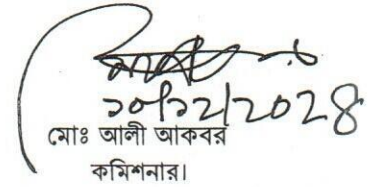 ১০/১২/২০২৪
মোঃ আলী আকবর
কমিশনার।